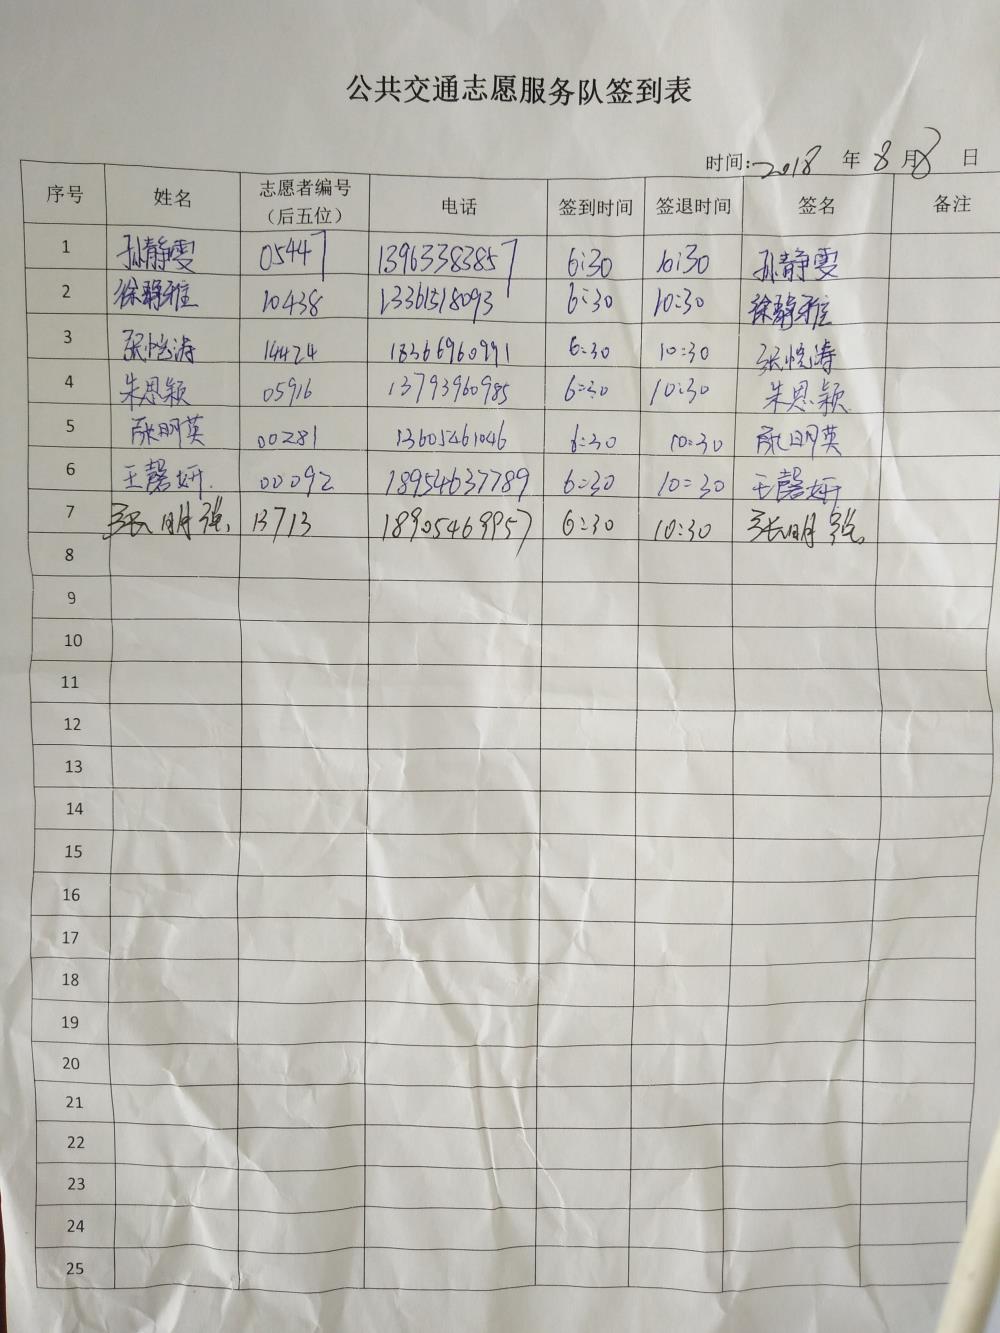 公共交通志愿服务队签到表
时间: 2018 年 8 月 8 日
序号 姓名 志愿者编号（后五位） 电话 签到时间 签退时间 签名 备注
1 孙静雯 05447 13963383857 6:30 10:30 孙静雯
2 徐静雅 10438 13361518093 6:30 10:30 徐静雅
3 张恺涛 14424 18366960991 6:30 10:30 张恺涛
4 朱思颖 05916 13793960985 6:30 10:30 朱思颖
5 明英 00281 13605461046 6:30 10:30 明英
6 王馨妍 00092 18954637789 6:30 10:30 王馨妍
7 张明强 13713 18905469957 6:30 10:30 张明强
8
9
10
11
12
13
14
15
16
17
18
19
20
21
22
23
24
25